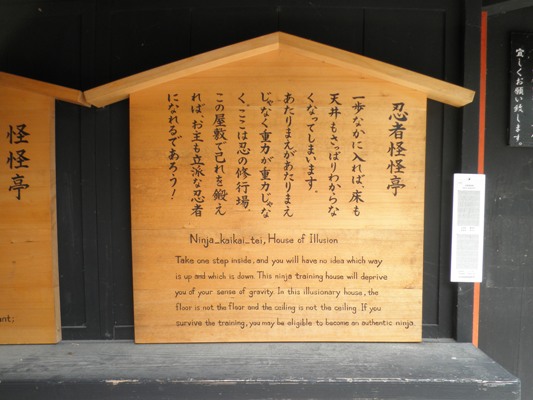 忍者怪怪亭
一歩なかに入れば、床も
天井もさっぱりわからな
くなってしまいます。
あたりまえがあたりまえ
じゃなく重力が重力じゃな
く。ここは忍の修行場、
この屋敷で己れを鍛え
れば、お主も立派な忍者
になれるであろう！
Ninja_kaikai_tei, House of Illusion
Take one step inside, and you will have no idea which way
is up and which is down. This ninja training house will deprive
you of your sense of gravity. In this illusionary house, the
floor is not the floor and the ceiling is not the ceiling. If you
survive the training, you may be eligible to become an authentic ninja.
怪怪亭
ant;
宜しくお願い致します。